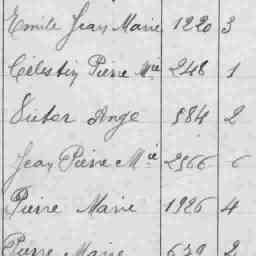 Emile Jean Marie 1220 3
Célestin Pierre Mie 248 1
Victor Ange 884 2
Jean Pierre Mie 2566 6
Pierre Marie 1926 4
Pierre Marie 679 2